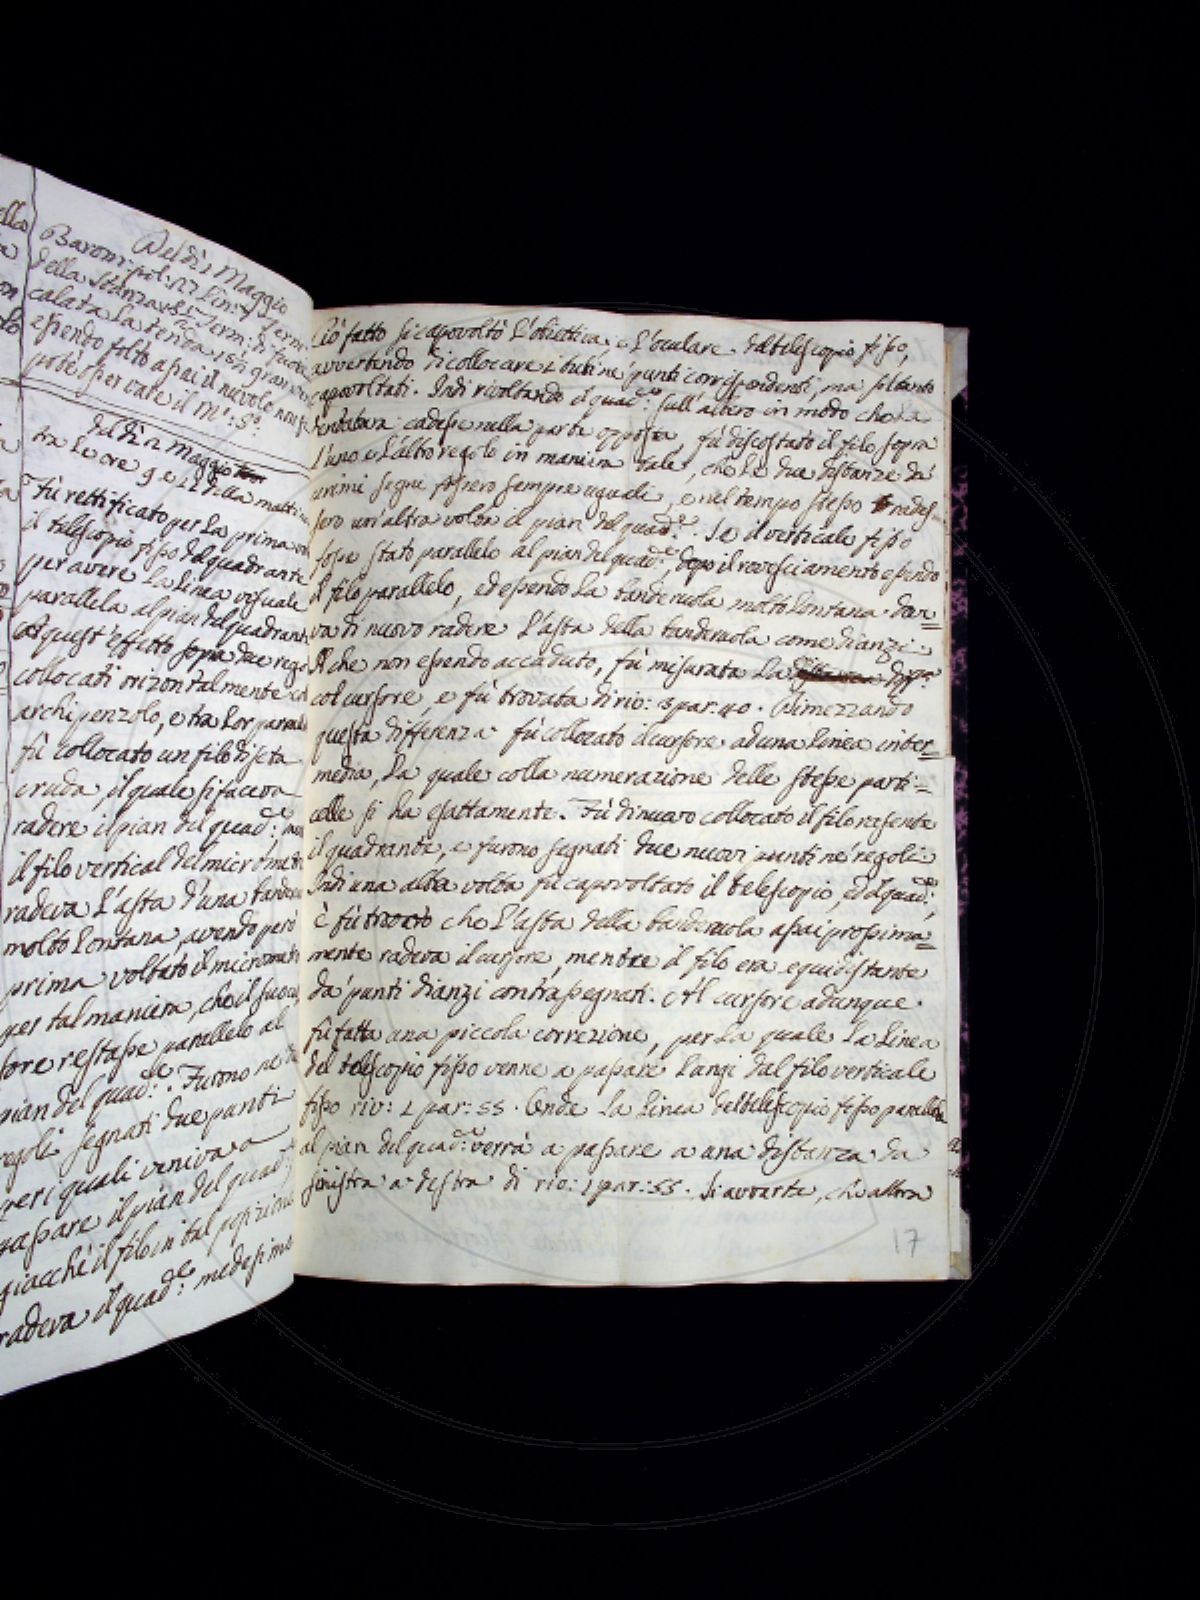 Del dì 1 Maggio
Barom: pol: 27 lin: 7 Term:
della stanza
calata la tenda 15½ gran
essendo folto assai il nuvolo non si
potè osservare il M.º S.º
Del dì 2 Maggio
tra le ore 9 e 11 della mattina
Fù rettificato per la prima
il telescopio fisso del quadrante
per avere la linea visuale
parallela al pian del quadrante
A quest'effetto sopra due rego
collocati orizontalmente col
archipenzolo, e tra lor paralle
fù collocato un filo di seta
cruda, il quale si faceva
radere il pian del quad.e:
il filo vertical del micromet
radeva l'asta d'una bande
molto lontana, avendo però
prima voltato il micromet
per tal maniera, che il suo cu
sore restasse parallelo al
pian del quad.e: Furono ne
regoli segnati due punti
peri quali veniva a
passare il pian del quad.e:
giacchè il filo in tal posizione
radeva il quad.e: medesimo
Ciò fatto si capovoltò l'obiettiva, e l'oculare del telescopio fisso,
avvertendo di collocare i tubi ne punti corrispondenti, ma soltanto
capovoltati. Indi rivoltando il quad.e: sull'albero in modo che la
tentatura cadesse nella parte opposta, fù discostato il filo sopra
l'uno e l'altro regolo in maniera tale, che le due distanze da'
primi segni fossero sempre uguali, e nel tempo stesso rades
sero un'altra volta il pian del quad.e: Se il verticale fisso
fosse stato parallelo al pian del quad.e, dopo il rovesciamento essendo
il filo parallelo, ed essendo la banderuola molto lontana dove=
va di nuovo radere l'asta della banderuola come dianzi.
Il che non essendo accaduto, fù misurata la diff.a
col cursore, e fù trovata di rio: 3 par: 40. Dimezzando
questa differenza fù collocato il cursore ad una linea inter=
media, la quale colla numerazione delle stesse parti=
celle si ha esattamente. Fù di nuovo collocato il filo rasente
il quadrante, e furono segnati due nuovi punti ne' regoli
Indi una altra volta fù capovoltato il telescopio, ed il quad.e:,
e fù trovato che l'asta della banderuola assai prossima=
mente radeva il cursore, mentre il filo era equidistante
da' punti dianzi contrassegnati. Al cursore adunque
fù fatta una piccola correzione, per la quale la linea
del telescopio fisso venne a passare lungi dal filo verticale
fisso riv: 1 par: 55. Onde la linea del telescopio fisso parallela
al pian del quad.e: verrà a passare a una distanza da
sinistra a destra di rio: 1 par: 55. Si avverte, che allora
17